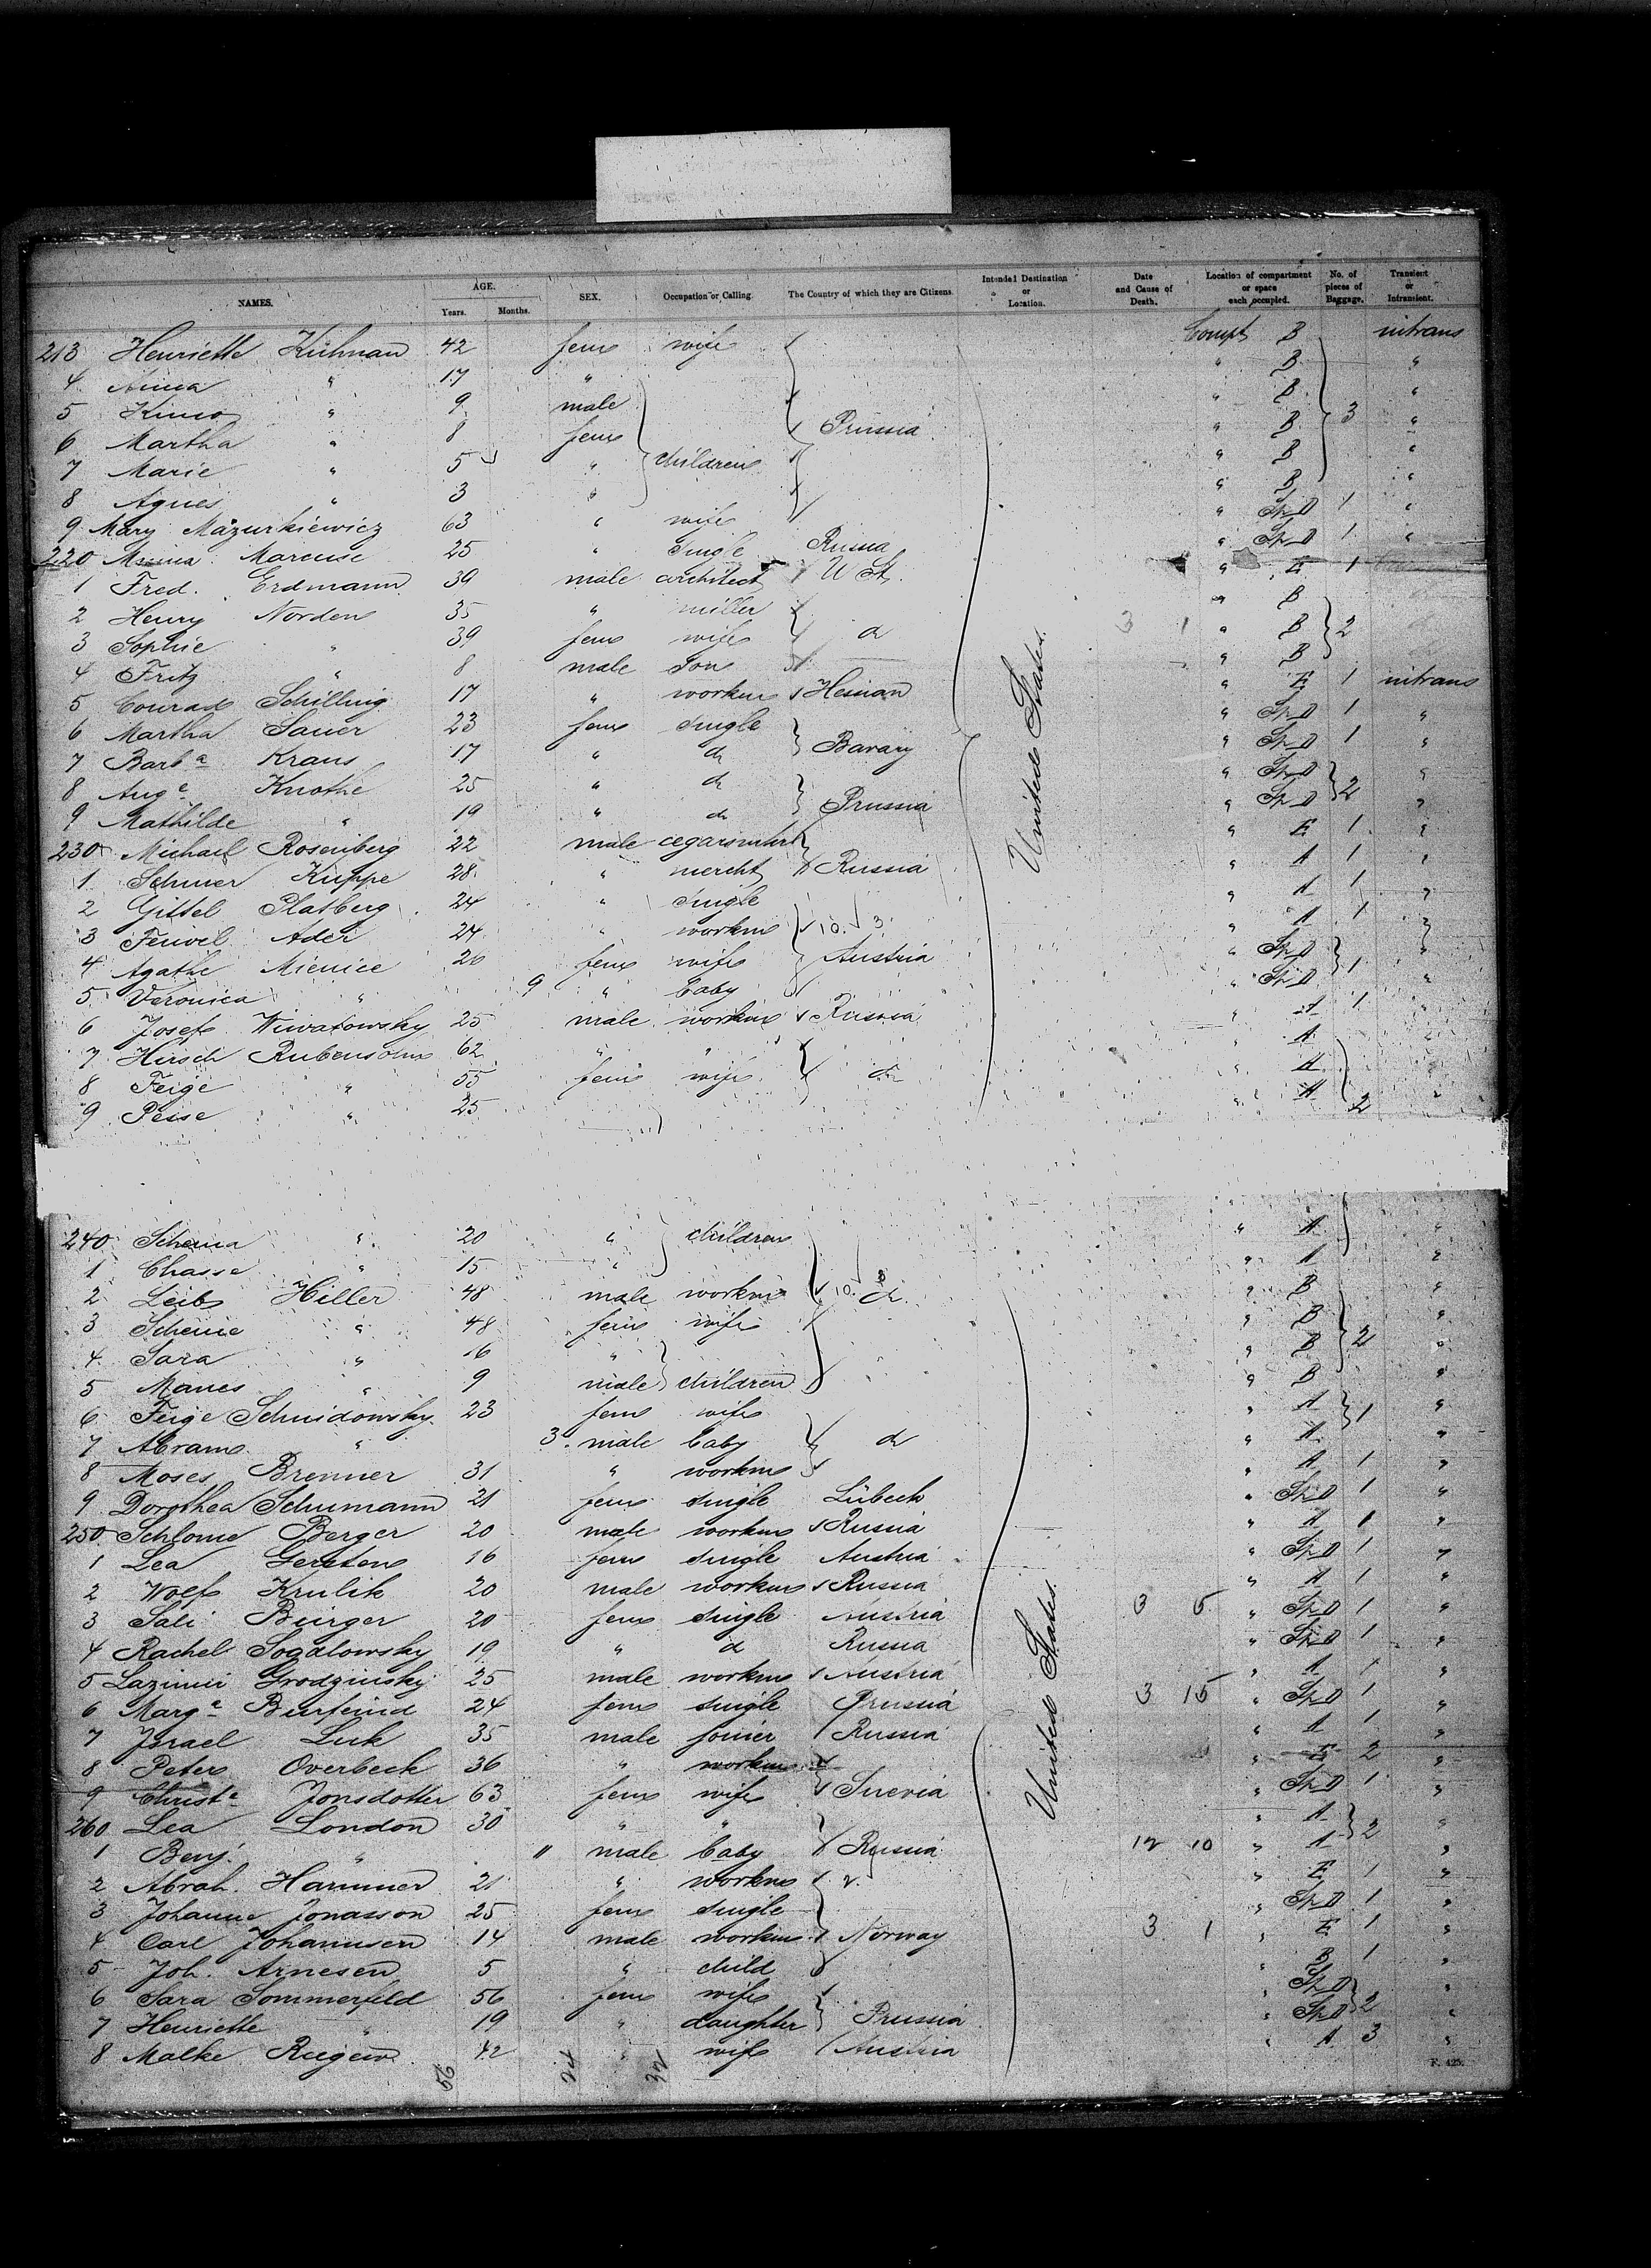 NAMES. AGE. Years. Months. SEX. Occupation or Calling. The Country of which they are Citizens. Intended Destination or Location. Date and Cause of Death. Location of compartment or space each occupied. No. of pieces of Baggage. Transient or Intransient.
213 Henriette Kühnau 42 fem wife Compt B intrans
4 " 17 " " B "
5 " 9 male " B "
6 Martha " 8 fem Prussia " B 3 "
7 Marie " 5 " children " B "
8 Agnes " 3 " " B "
9 Mary Mazurkiewicz 63 " wife " Sp. D 1 "
220 Marcuse 25 " single Russia " Sp. D 1 "
1 Fred. Erdmann 39 male architect U St. " E 1
2 Henry Norden 35 " miller " B
3 Sophie " 39 fem wife do 3 1 " B 2
4 Fritz " 8 male son " B
5 Conrad Schilling 17 " workm Hessian " E 1 intrans
6 Martha Sauer 23 fem single " Sp. D 1 "
7 Barba Kraus 17 " do Bavary " Sp. D 1 "
8 Auge Knothe 25 " do " Sp. D "
9 Mathilde " 19 " do Prussia " Sp. D 2 "
230 Michael Rosenberg 22 male " E 1 "
1 Kuppe 28 " mercht Russia " A 1 "
2 Gittel Platberg 24 " single " A 1 "
3 Feiwel Ader 24 " workm 10. 3 " A 1 "
4 Agathe 26 fem wife Austria " Sp. D "
5 Veronica " 9 " baby " Sp. D 1 "
6 Josef Wiwatowsky 25 male workm Russia " A 1 "
7 Hirsch Rubensohn 62 " " " A
8 Feige " 55 fem wife do " A
9 Pesse " 25 " A 2 "
240 " 20 " children " A "
1 Chasse " 15 " " A "
2 Leib Hiller 48 male workm 10. 8 do " B "
3 " 48 fem wife " B "
4 Sara " 16 " " B 2 "
5 Manes " 9 male children " B "
6 Feige Schnidowsky 23 fem wife " A 1 "
7 Abram " 3 male baby do " A "
8 Moses Brenner 31 " workm " A 1 "
9 Dorothea Schumann 21 fem single Lübeck " Sp. D 1 "
250 Schlome Berger 20 male workm Russia " A 1 "
1 Lea Gersten 16 fem single Austria " Sp. D 1 "
2 Wolf Krulik 20 male workm Russia " A 1 "
3 Sali Bürger 20 fem single Austria 3 5 " Sp. D 1 "
4 Rachel Sogalowsky 19 " d Russia " Sp. D 1 "
5 Lazimir Grodzinsky 25 male workm Austria " A 1 "
6 Marga Burfeind 24 fem single Prussia 3 15 " Sp. D 1 "
7 Israel Luk 35 male joiner Russia " A 1 "
8 Peter Overbeck 36 " workm " E 2 "
9 Christa Jonsdotter 63 fem wife Suevia " Sp. D 1 "
260 Lea London 30 " " " A "
1 Benj. " 11 male baby Russia 12 10 " A 2 "
2 Abrah. Hammer 21 " workm " E 1 "
3 Johanne Jonasson 25 fem single " Sp. D 1 "
4 Carl Johannsen 14 male workm Norway 3 1 " E 1 "
5 Joh. Arnesen 5 " child " B 1 "
6 Sara Sommerfeld 56 fem wife " Sp. D "
7 Henriette " 19 " daughter Prussia " Sp. D 2 "
8 Malke 42 " wife Austria " A 3 "
United States.
United States.
56 24 32
F. 425.